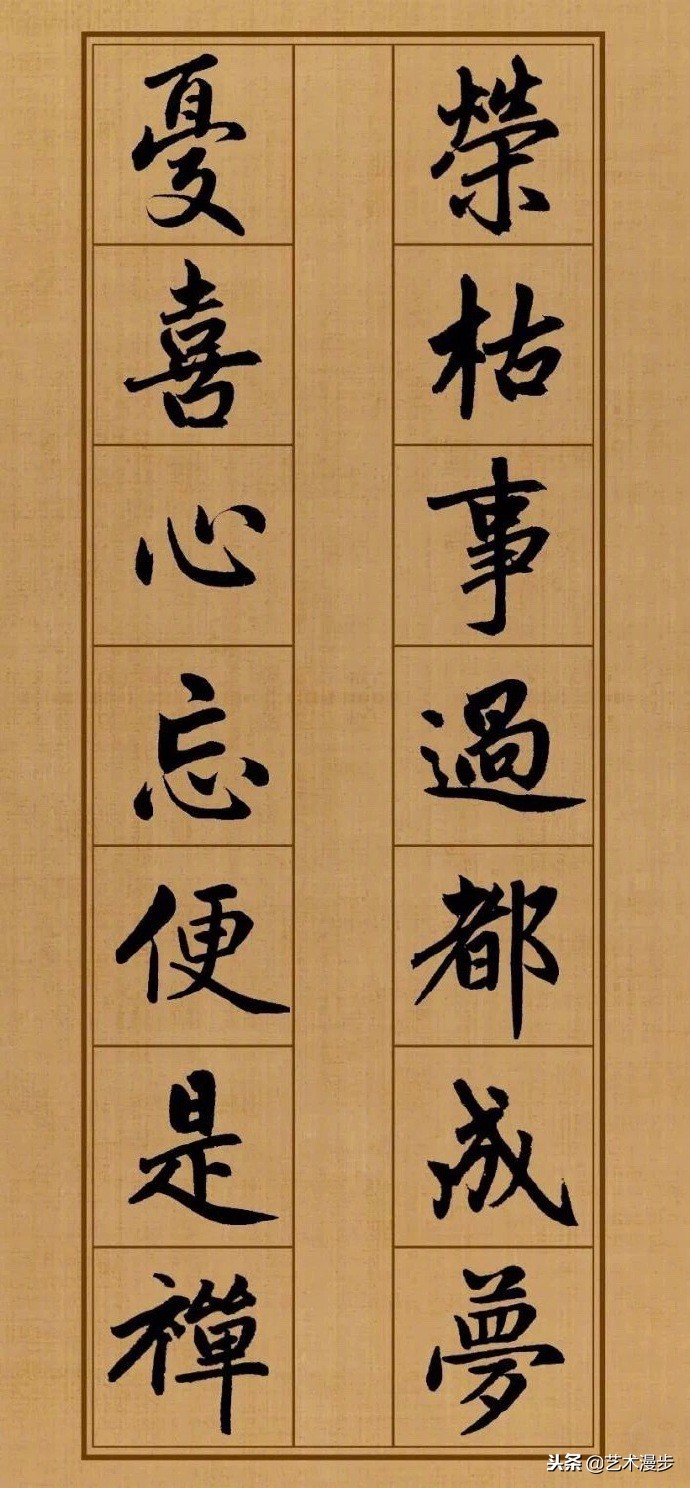 榮枯事過都成夢
憂喜心忘便是禪
头条@艺术漫步